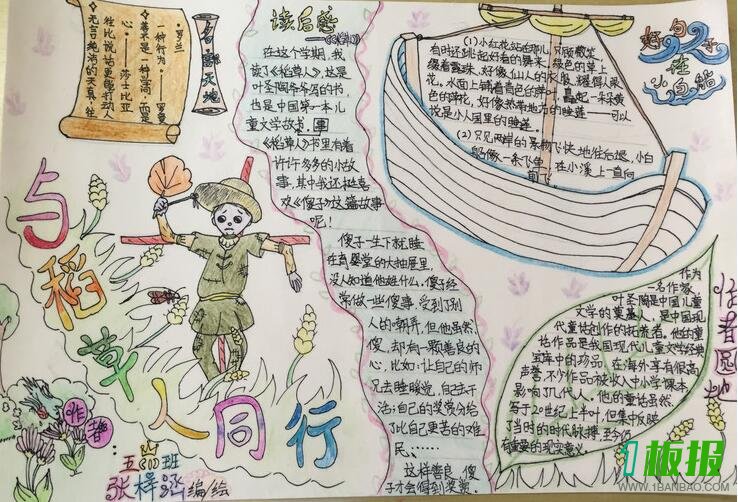 名言天地
·罗兰
一种行为——罗曼
善不是一种学问，而是
心。——莎士比亚
往比说话更能打动人
·无言纯洁的天真，往
与稻草人同行
作者：
五四班
张梓涵编绘
读后感
——《稻草人》
在这个学期，我
读了《稻草人》，这是
叶圣陶爷爷写的书，
也是中国第一本儿
童文学故书，事
《稻草人》书里有着
许许多多的小故
事，其中我还挺喜
欢《傻子》这篇故事
呢！
傻子一生下就睡
在育婴堂的大抽屉里，
没人知道他姓什么。傻子经
常做一些傻事，受到了别
人的嘲弄。但他虽然
傻，却有一颗善良的
心，比如：让自己的师
兄去睡觉，自己去干
活；自己的奖赏分给
了比自己更苦的难
民、……
这样善良，傻
子才会得到奖赏。
好句子在小白船
(1)小红花站在那儿，只顾微笑，
有时还跳起好看的舞来。
绿色的草上
缀着露珠，好像仙人的衣服，耀得人眼
花。水面上铺着青色的萍叶，矗起一朵朵黄
色的萍花，好像热带地方的睡莲——可以
说是小人国里的睡莲。
(2)只见两岸的景物飞快地往后退，小白
船像一条飞鱼，在小溪上一直向
前飞。
作者圆地
作为
一名作家，
叶圣陶是中国儿童
文学的奠基人，是中国现
代童话创作的拓荒者。他的童
话作品是我国现代儿童文学经典
宝库中的珍品，在海外享有很高
声誉，不少作品被收入中小学课本，
影响了几代人。他的童话虽然
写于20世纪上半叶，但集中反映
了当时的时代脉搏，至今仍
有重要的现实意义。
1板报
WWW.1BANBAO.COM